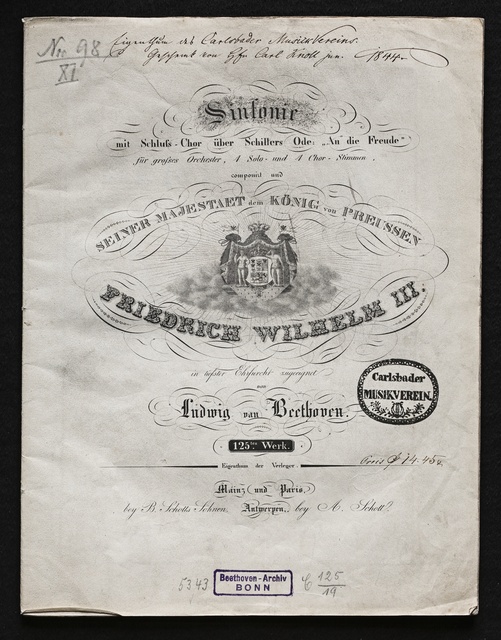 Nro 98
XI
Eigenthum des Carlsbader Musikvereins.
Geschenk von Hfn Carl Knoll jun. 1844.
Sinfonie
mit Schluſs-Chor über Schillers Ode: „An die Freude"
für groſses Orchester, 4 Solo- und 4 Chor-Stimmen,
componirt und
SEINER MAJESTAET dem KÖNIG von PREUSSEN
FRIEDRICH WILHELM III.
in tiefster Ehrfurcht zugeeignet
von
Ludwig van Beethoven.
Carlsbader
MUSIKVEREIN.
125tes Werk.
Eigenthum der Verleger.
Preis f 14. 45x.
Mainz und Paris,
bey B. Schotts Söhnen. Antwerpen, bey A. Schott.
5343
Beethoven-Archiv
BONN
C 125
19